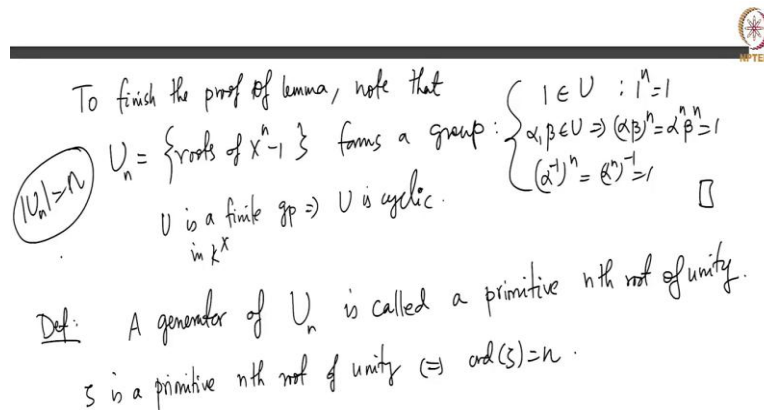 NPTEL
To finish the proof of lemma, note that
Uₙ = {roots of Xⁿ-1} forms a group : { 1 ∈ U : 1ⁿ=1
α, β ∈ U ⇒ (αβ)ⁿ = αⁿβⁿ=1
(α⁻¹)ⁿ = (αⁿ)⁻¹=1
|Uₙ|=n
U is a finite gp ⇒ U is cyclic. □
in K^×
Def: A generator of Uₙ is called a primitive nth root of unity.
ζ is a primitive nth root of unity ⇔ ord(ζ)=n.